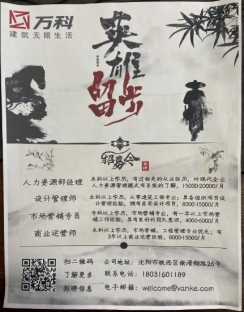 万科
建筑无限生活
英雄
留步
招募会
人力资源部经理
本科以上学历，有过相关的从业经历，对现代企业
人力资源管理模式有系统的了解。15000-20000/月
设计管理师
本科以上学历，从事建筑工程专业；具备组织项目设
计管理能力，拥有点范设计项目。8000-15000/月
市场营销专员
专科以上学历，市场营销专业，有一年以上市场营
销工作经验，具有良好的团队意识。4000-6000/月
商业运营师
本科以上学历，市场营销、工程管理专业优先；有
3年以上商业运营经验。8000-5000/月
扫二维码
了解更多
招聘信息
公司地址：沈阳市铁西区南滑翔路26号
联系电话：18031601189
电子邮箱：welcome@vanke.com